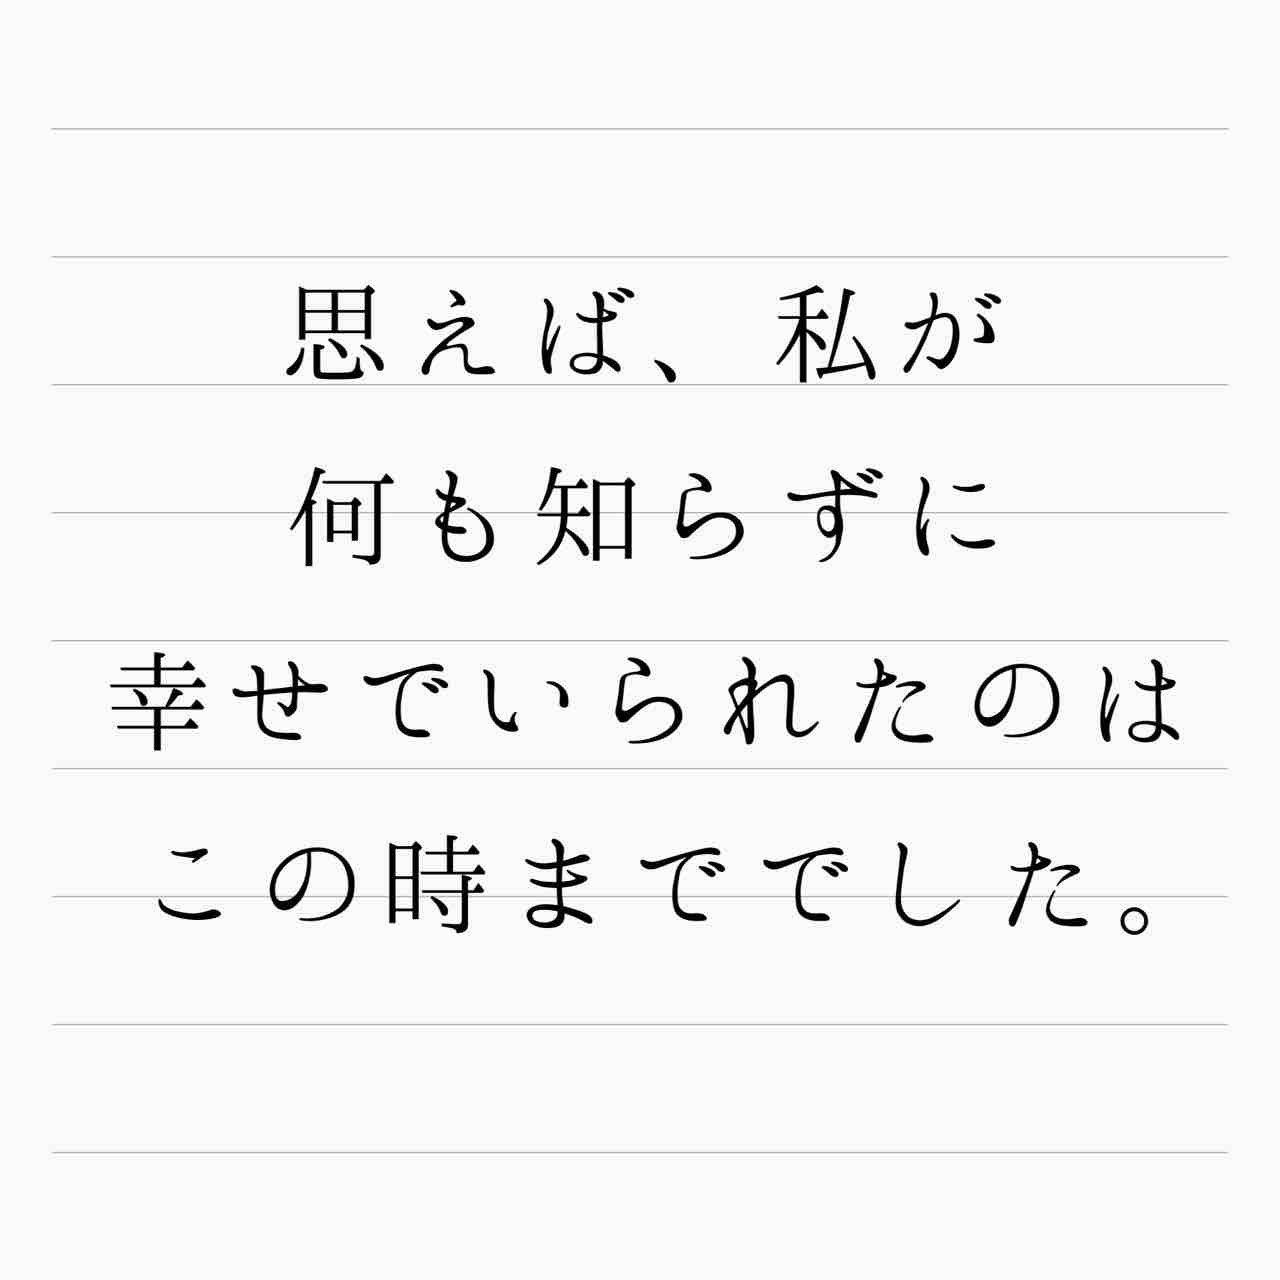 思えば、私が
何も知らずに
幸せでいられたのは
この時まででした。